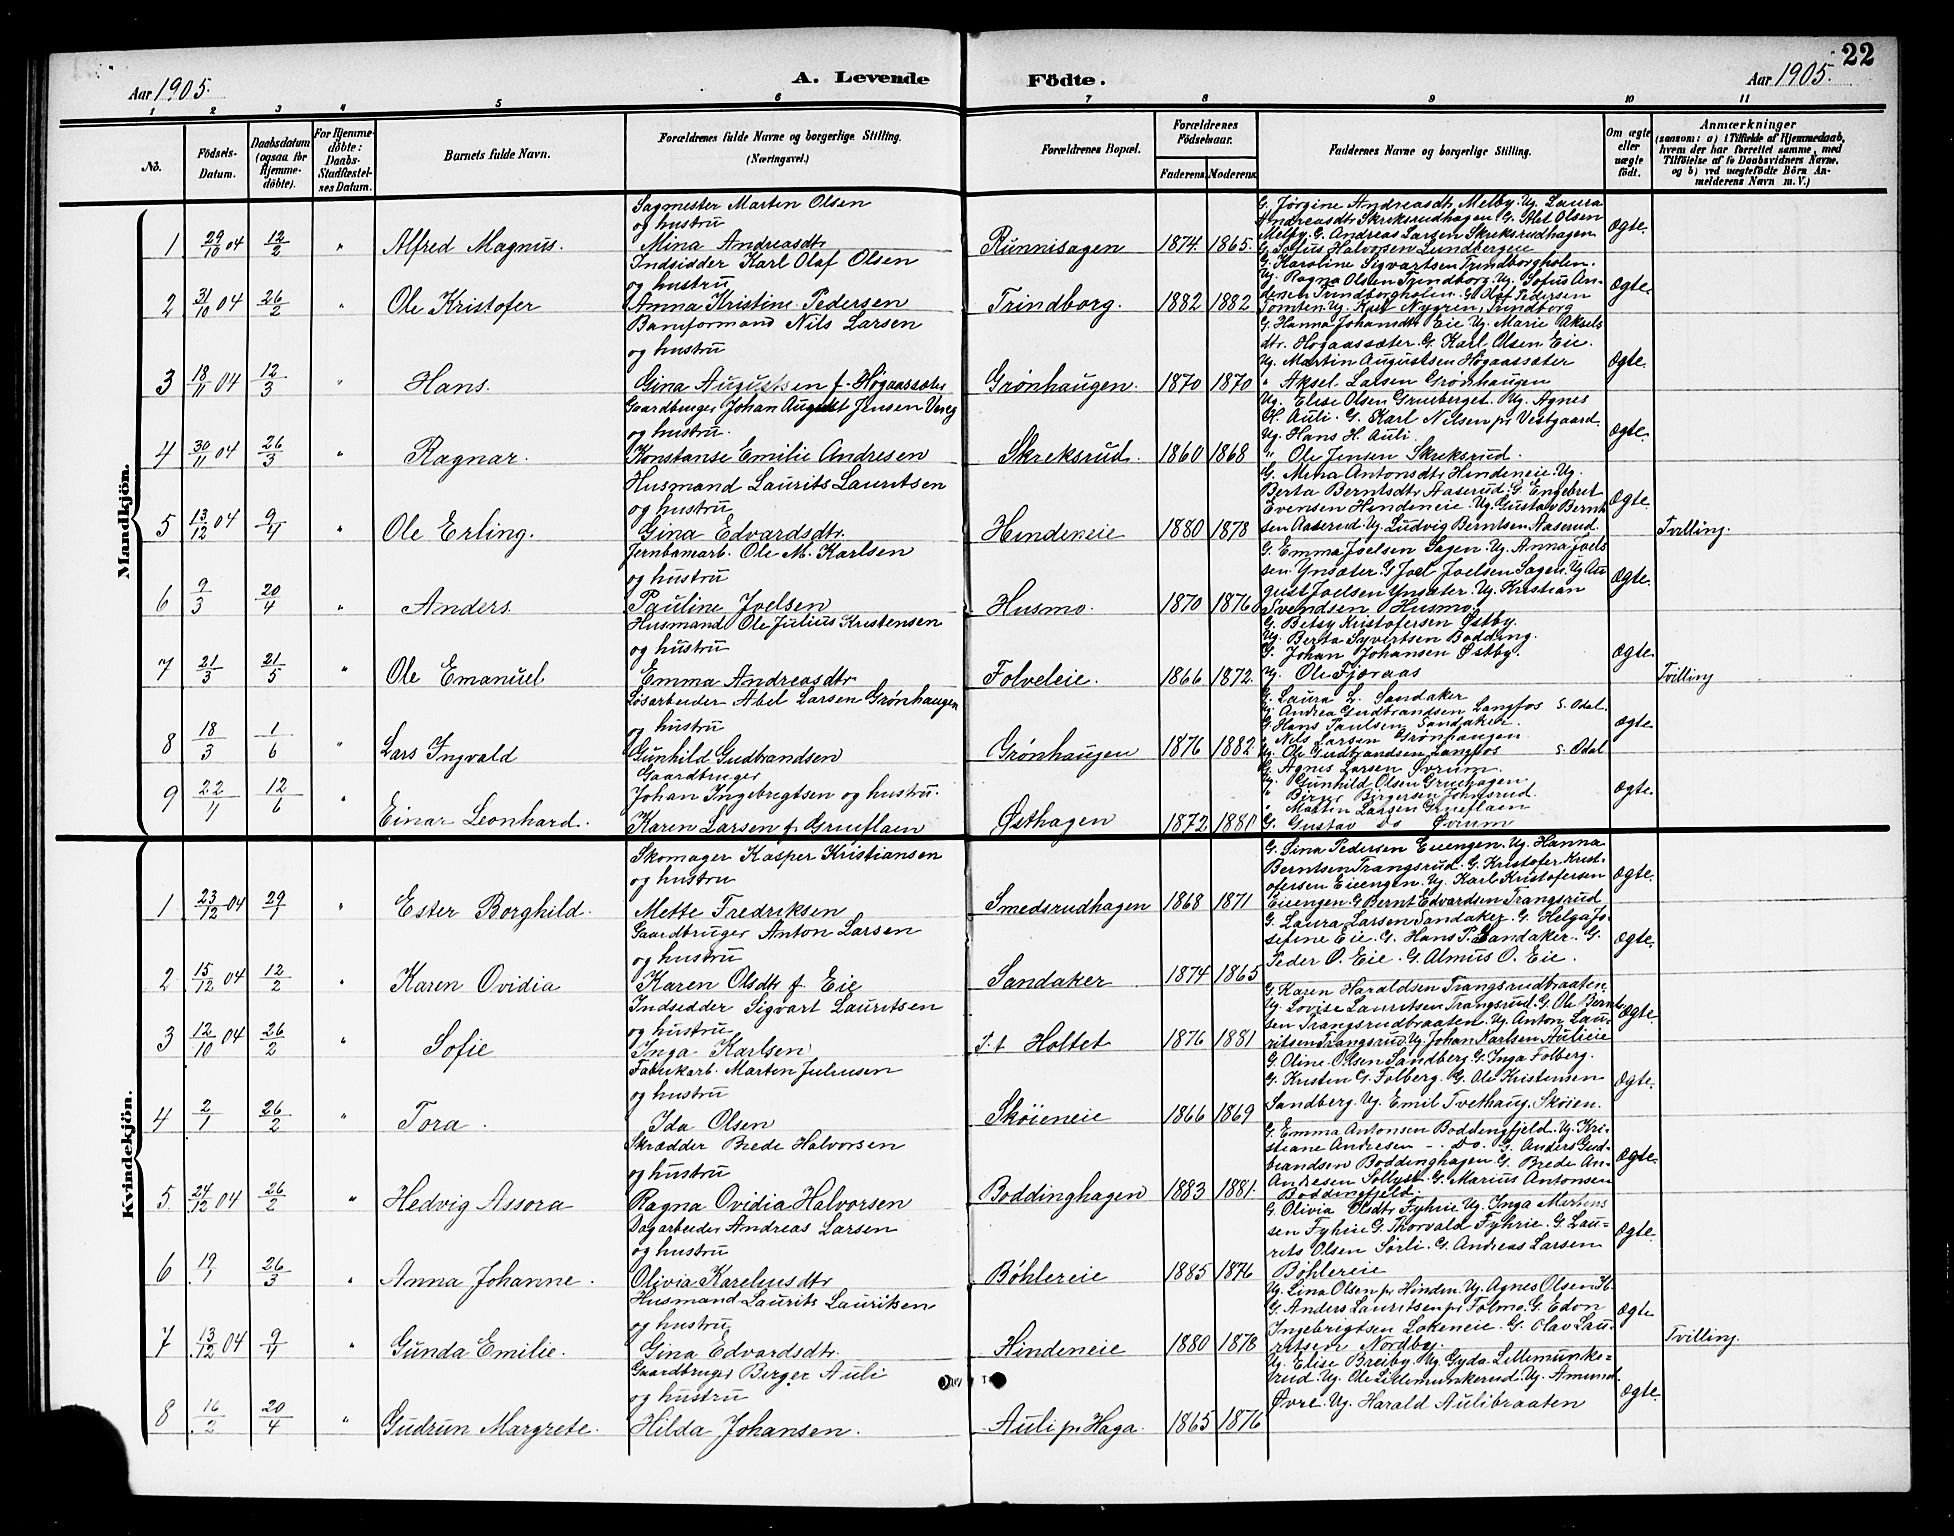 22
Aar 1905.
A. Levende
Födte.
Aar 1905.
1 2 3 4 5 6 7 8 9 10 11
No.
Födsels-
Datum.
Daabsdatum
(ogsaa for
Hjemme-
döbte).
For Hjemme-
döbte:
Daabs-
Stadfæstel-
ses Datum.
Barnets fulde Navn.
Forældrenes fulde Navne og borgerlige Stilling.
(Næringsvei.)
Forældrenes Bopæl.
Forældrenes
Födselsaar.
Faderens. Moderens.
Faddernes Navne og borgerlige Stilling.
Om ægte
eller
uægte
födt.
Anmærkninger
(saasom: a) i Tilfælde af Hjemmedaab,
hvem der har forrettet samme, med
Tilföielse af to Daabsvidners Navne,
og b) ved uægtefödte Börn An-
melderens Navn m. V.)
Mandkjön.
Sagmester Marten Olsen
og hustru
1 29/10 04 12/2 " Alfred Magnus. Mina Andreasdtr Runnisagen 1874 1865.
G. Jørgine Andreasdtr Melby. Ug. Laura
Andreasdtr Skreksrudhagen G. Olsen
Melby. G. Andreas Larsen Skreksrudhagen
G. Julius Halvorsen Lundbergeie
Ægte.
Indsidder Karl Olaf Olsen
og hustru
2 31/10 04 26/2 " Ole Kristofer Anna Kristine Pedersen Trindborg. 1882 1882
G. Karoline Sigvartsen Trindborgholen.
Ug. Ragna Olsen Trindborg. Ug. Sofus An-
dersen Trindborgholen. G. Olaf Pedersen
Tomten. Ug. Karl Nygren, Trindborg
Ægte.
Baneformand Nils Larsen
og hustru
3 18/11 04 12/3 " Hans. Gina Augustsen f. Høgaassæter Grønhaugen. 1870 1870
G. Hanna Johansdtr Eie Ug. Marie Aksels
dtr. Høgaassæter. G. Karl Olsen Eie.
Ug. Martin Augustsen Høgaassæter
" Aksel Larsen Grønhaugen
Ægte.
Gaardbruger Johan August Jensen
og hustru.
4 30/11 04 26/3 " Ragnar. Konstanse Emilie Andresen Skreksrud. 1860 1868
Ug. Elise Olsen Grueberget. Ug. Agnes
H. Auli. G. Karl Nilsen pr Vestgaard.
Ug. Hans H. Auli.
" Ole Jensen Skreksrud.
Ægte.
Husmand Laurits Lauritsen
og hustru
5 13/12 04 9/4 " Ole Erling. Gina Edvardsdtr. Hindeneie 1880 1878
G. Mina Antonsdtr Hindeneie. Ug.
Berta Berntsdtr Aaserud. G. Engebret
Evensen Hindeneie. Ug. Gustav Bernt
sen Aaserud. Ug. Ludvig Berntsen Aaserud.
Ægte.
Tvilling.
Jernbanearb. Ole M. Karlsen
og hustru
6 9/3 20/4 " Anders Pauline Joelsen Husmo. 1870 1876
G. Emma Joelsen Sagen. Ug. Anna Joels
sen Ynsæter. G. Joel Joelsen Sagen. Ug. Au
gust Joelsen Ynsæter. Ug. Kristian
Svendsen Husmo.
Ægte.
Husmand Ole Julius Kristensen
og hustru
7 21/3 21/5 " Ole Emanuel Emma Andreasdtr Folveleie. 1866 1872
G. Betsy Kristofersen Østby.
Ug. Berta Syvertsen Bodding.
G. Johan Johansen Østby.
Ug. Ole Fjøraas
Ægte.
Tvilling
Løsarbeider Abel Larsen Grønhaugen
og hustru
8 18/3 1/6 " Lars Ingvald Gunhild Gudbrandsen Grønhaugen 1876 1882
G. Laura L. Sandaker
Ug. Andrea Gudbrandsen Langfos S. Odal.
G. Hans Paulsen Sandaker.
" Nils Larsen Grønhaugen
Ug. Ole Gudbrandsen Langfos S. Odal
Ægte.
Gaardbruger
Johan Ingebregtsen og hustru.
9 22/1 12/6 " Einar Leonhard. Karen Larsen f. Grueflaen Østhagen 1872 1881
G. Agnes Larsen Øvrum.
Ug. Gunhild Olsen Gruehagen.
" Birger Birgersen Johnsrud.
" Martin Larsen Grueflaen
G. Gustav do Øvrum
Ægte.
Kvindekjön.
Skomager Kasper Kristiansen
og hustru
1 23/12 04 29/1 " Ester Borghild. Mette Fredriksen Smedsrudhagen 1868 1871
G. Sina Pedersen Eiengen. Ug. Hanna
Berntsen Trangsrud. G. Kristofer Krist-
ofersen Eiengen. Ug. Karl Kristofersen
Eiengen. G. Bernt Edvardsen Trangsrud
Ægte.
Gaardbruger Anton Larsen
og hustru
2 15/12 04 12/2 " Karen Ovidia Karen Olsdtr f. Eie Sandaker 1874 1865
G. Laura Larsen Sandaker G. Helga Jo-
sefine Eie. G. Hans P. Sandaker. G.
Peder O. Eie. G. Almus O. Eie.
Ægte.
Indsidder Sigvart Lauritsen
og hustru
3 12/10 04 26/2 " Sofie Inga Karlsen P.t Holtet 1876 1881
G. Karen Haraldsen Trangsrudbraaten
Ug. Lovise Lauritsen Trangsrud. G. Ole Bernt
sen Trangsrudbraaten. Ug. Anton Lau-
ritsen Trangsrud. Ug. Johan Karlsen Aulieie
Ægte.
Fabrikarb. Marten Juliusen
og hustru
4 2/1 26/2 " Tora. Ida Olsen Skøieneie 1866 1869
G. Oline Olsen Sandberg. G. Inga Folberg.
G. Kristen G. Folberg. G. Ole Kristensen
Sandberg. Ug. Emil Tvethaug, Skøien.
Ægte.
Skrædder Brede Halvorsen
og hustru
5. 24/12 04 26/2 " Hedvig Assora Ragna Ovidia Halvorsen Boddinghagen 1883 1881.
G. Emma Antonsen Boddingfjeld. Ug. Kri-
stiane Andresen - " - Do. G. Anders Gud-
brandsen Boddinghagen G. Brede An-
dresen Sollyst. G. Marius Antonsen
Boddingfjeld.
Ægte.
Dagarbeider Andreas Larsen
og hustru
6 19/1 26/3 " Anna Johanne. Olivia Kareliusdtr Bøhlereie 1885 1876
G. Olivia Olsdtr Fyhrie Ug. Inga Martins
sen Fyhrie G. Thorvald Fyhrie. G. Lau-
rits Olsen Sørli. G. Andreas Larsen
Bøhlereie
Ægte.
Husmand Laurits Lauritsen
og hustru
7 13/12 04 9/4 " Gunda Emilie. Gina Edvardsdtr. Hindeneie 1880 1878
Ug. Lina Olsen pr Hinden. Ug. Agnes Olsen H.
G. Anders Lauritsen pr Folmo. G. Edon
Ingebrigtsen Løkeneie. G. Olav Lau-
ritsen Nordby.
Ægte
Tvilling.
Gaardbruger Berger Auli
og hustru
8 16/2 20/4 " Gudrun Margrete. Hilda Johansen. Auli pr Haga. 1865 1876
Ug. Elise Breiby. Ug. Gyda Lillemunke-
rud. Ug. Ole Lillemunkerud. Ug. Amund
Øvre. Ug. Harald Aulibraaten
Ægte.